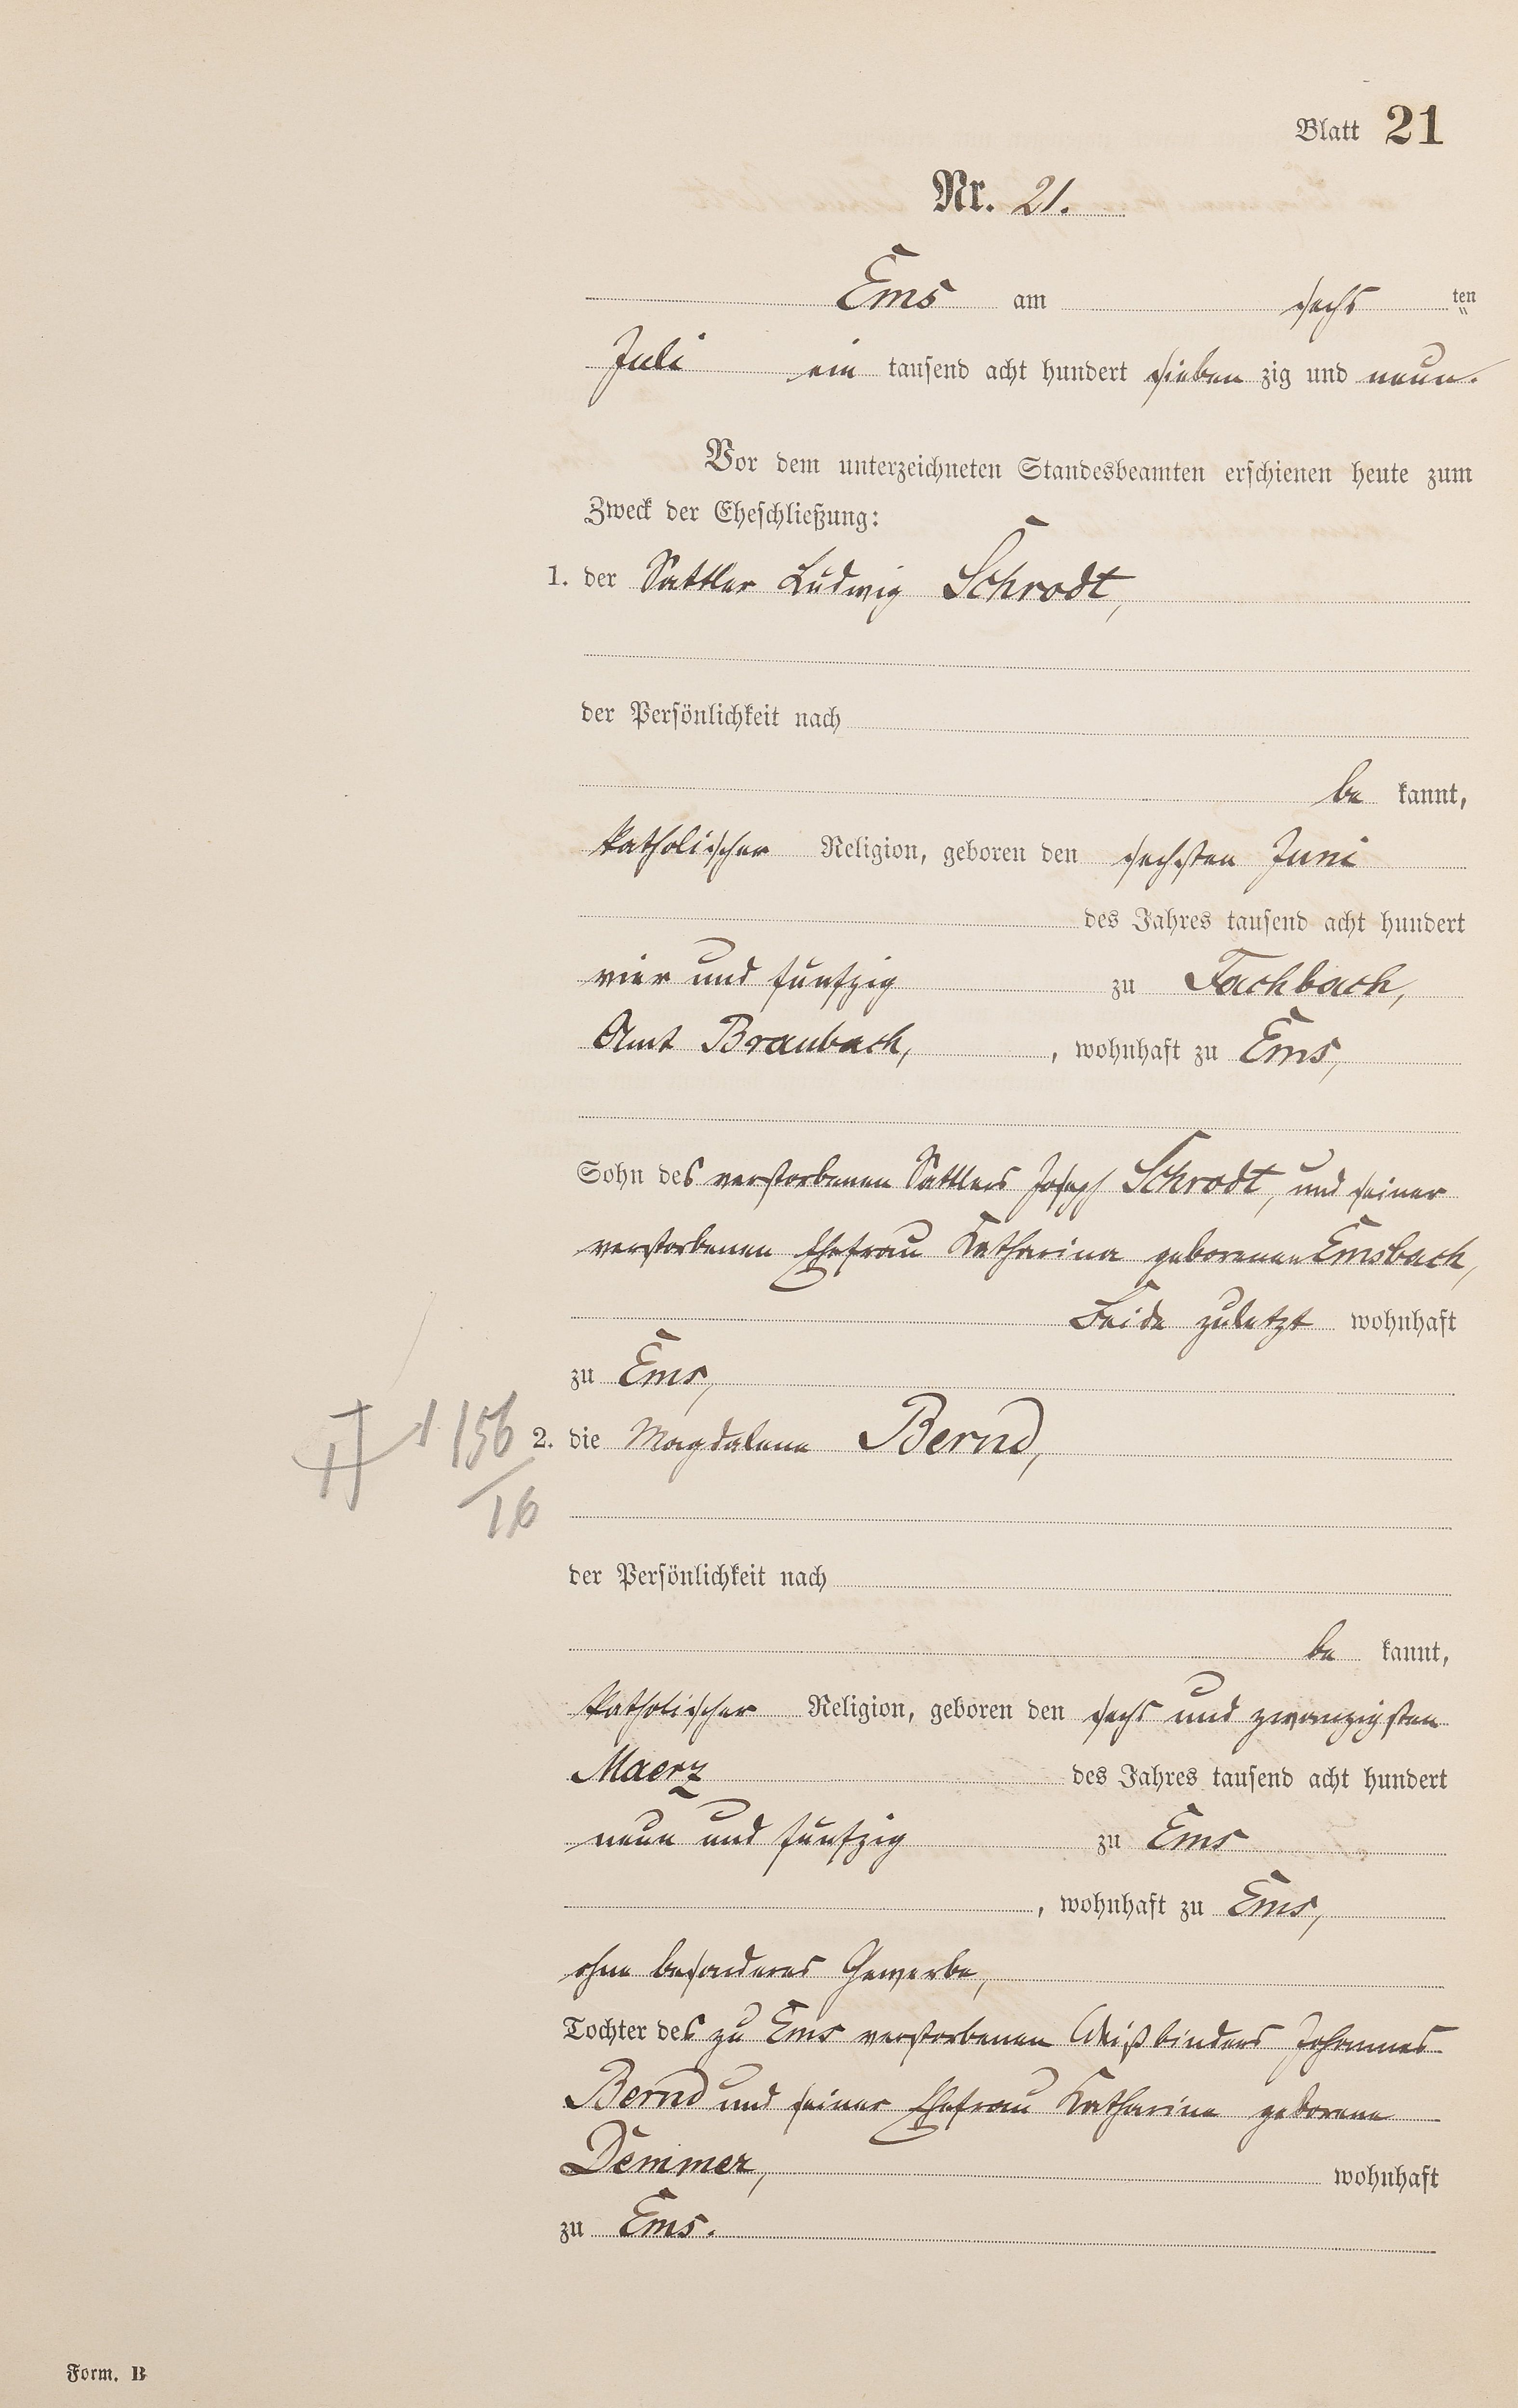 Blatt 21
Nr. 21.
Ems am sechs ten
Juli ein tausend acht hundert sieben zig und neun.
Vor dem unterzeichneten Standesbeamten erschienen heute zum
Zweck der Eheschließung:
1. der Sattler Ludwig Schrodt,
der Persönlichkeit nach
be kannt,
katholischer Religion, geboren den sechsten Juni
des Jahres tausend acht hundert
vier und fünfzig zu Fachbach,
Amt Braubach, , wohnhaft zu Ems,
Sohn des verstorbenen Sattlers Joseph Schrodt, und seiner
verstorbenen Ehefrau Katharina geborenen Emsbach,
Beide zuletzt wohnhaft
zu Ems,
2. die Magdalena Bernd,
156
16
der Persönlichkeit nach
be kannt,
katholischer Religion, geboren den sechs und zwanzigsten
Maerz des Jahres tausend acht hundert
neun und fünfzig zu Ems
, wohnhaft zu Ems,
ohne besonderes Gewerbe,
Tochter des zu Ems verstorbenen Weißbinders Johannes
Bernd und seiner Ehefrau Katharina geborene
Demmer, wohnhaft
zu Ems.
Form. B